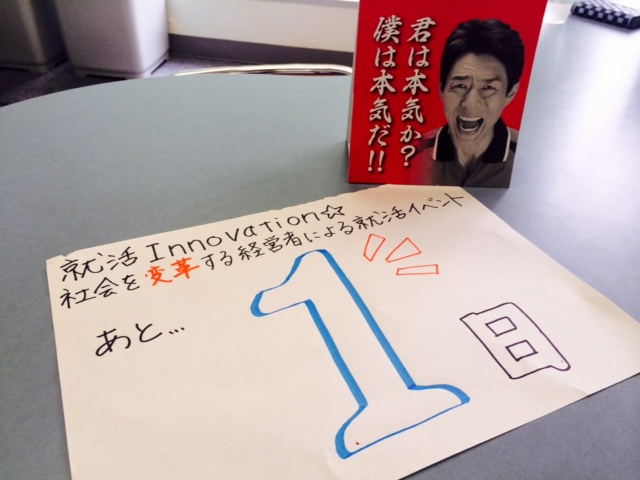 君は本気か?
僕は本気だ!!
就活Innovation☆
社会を変革する経営者による就活イベント
あと...
1日